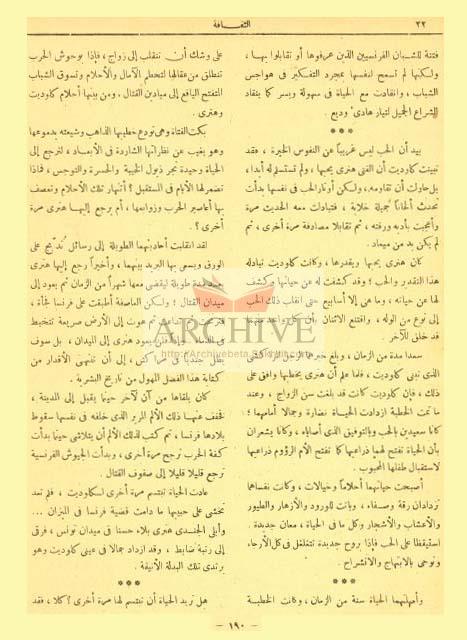 ٢٢
الثقافة
فتنة للشبان الفرنسيين الذين عرفوها أو تقابلوا بها،
ولكنها لم تسمح لنفسها بمجرد التفكير في هواجس
الشباب، وانقادت مع الحياة في سهولة ويسر كما ينقاد
الشراع الجميل لتيار هادىء وديع.
***
بيد أن الحب ليس غريباً عن النفوس الخيرة، فقد
تبينت كلوديت أن الفتى هنرى يحبها، ولم تستسلم له أبدا،
بل حاولت أن تقاومه، ولكن أوتار الحب في نفسها بدأت
تحدث ألحاناً جميلة خلابة، فتبادلت معه الحديث مرة
وأعجبت بأدبه ورقته، ثم تقابلا مصادفة مرة أخرى، ثم
لم يكن بد من ميعاد.
كان هنرى يحبها ويقدرها، وكانت كلوديت تبادله
هذا التقدير والحب؛ وقد كشفت له عن حياتها وكشف
لها عن حياته، وما هى إلا أسابيع حتى انقلب ذلك الحب
إلى نوع من الوله، واقتنع الاثنان بأن كل واحد منهما
قد خلق للآخر.
سعدا مدة من الزمان، وبلغ خبرهما الرجل
الذى تبنى كلوديت، فلما علم أن هنرى يخطبها وافق على
ذلك، فإن كلوديت كانت قد بلغت سن الزواج، وعند
ما تمت الخطبة ازدادت الحياة نضارة وجمالا أمامهما؛
كانا سعيدين بالحب وبالتوفيق الذى أصاباه، وكانا يشعران
بأن الحياة تفتح لهما ذراعيها كما تفتح الأم الرؤوم ذراعيها
لاستقبال طفلها المحبوب.
أصبحت حياتهما أحلاماً وخيالات، وكانت نفساهما
تزدادان رقة وصفاء، وباتت للورود والأزهار والطيور
والأعشاب والأشجار وكل ما في الحياة، معان جديدة.
استيقظا على الحب فإذا بروح جديدة تتغلغل في كل الأرجاء،
وتوحى بالابتهاج والانشراح.
***
وأمهلتهما الحياة سنة من الزمان، وكانت الخطيبة
على وشك أن تنقلب إلى زواج، فإذا بوحوش الحرب
تنطلق من عقالها لتحطم الآمال والأحلام وتسوق الشباب
المتفتح اليافع إلى ميادين القتال. ومن بينها أحلام كلوديت
وهنرى.
بكت الفتاة وهى تودع خطيبها الذاهب وشيعته بدموعها
وهو يغيب عن نظراتها الشاردة في الأبعاد، ثم ترجع إلى
الحياة وحيدة تجر ذيول الخيبة والحسرة والتوجس، فماذا
تضمر لها الأيام في المستقبل؟ أتنهار تلك الأحلام وتعصف
بها أعاصير الحرب وزوابعها، أم يرجع إليها هنرى مرة
أخرى؟.
لقد انقلبت أحاديثهما الطويلة إلى رسائل تُدبّج على
الورق ويسعى بها البريد بينهما، وأخيراً رجع إليها هنرى
بعد مدة طويلة ليقضى معها شهراً من الزمان ثم يعود إلى
ميدان القتال؛ ولكن العاصفة أطبقت على فرنسا فجأة،
على الأرض صريعة تتخبط
في الدماء، وإذا هنرى يعود هنرى إلى الميدان، بل سوف
يظل جنديا في إلى أن تنتهى الأقدار من
كتابة هذا الفصل المهول من تاريخ البشرية.
كان يلقاها من آن لآخر حينما يقبل إلى المدينة،
فخفف عنها ذلك الألم المرير الذى خلفه في نفسها سقوط
بلادها فرنسا، ثم كتب لذلك الألم أن يتلاشى حينما بدأت
كفة الحرب ترجح مرة أخرى، وبدأت الجيوش الفرنسية
ترجع قليلا قليلا إلى صفوف القتال.
عادت الحياة تبتسم مرة أخرى لكلوديت، فلم تعد
تخشى على حبيبها ما دامت قضية فرنسا في الميزان ...
وأبلى الجندى هنرى بلاء حسنا في ميدان تونس، فرقى
إلى رتبة ضابط، وقد ازداد جمالا في عينى كلوديت وهو
يرتدى تلك البدلة الأنيقة.
***
هل تريد الحياة أن تبتسم لها مرة أخرى؟ كلا، فقد
— ١٩٠ —
ARCHIVE